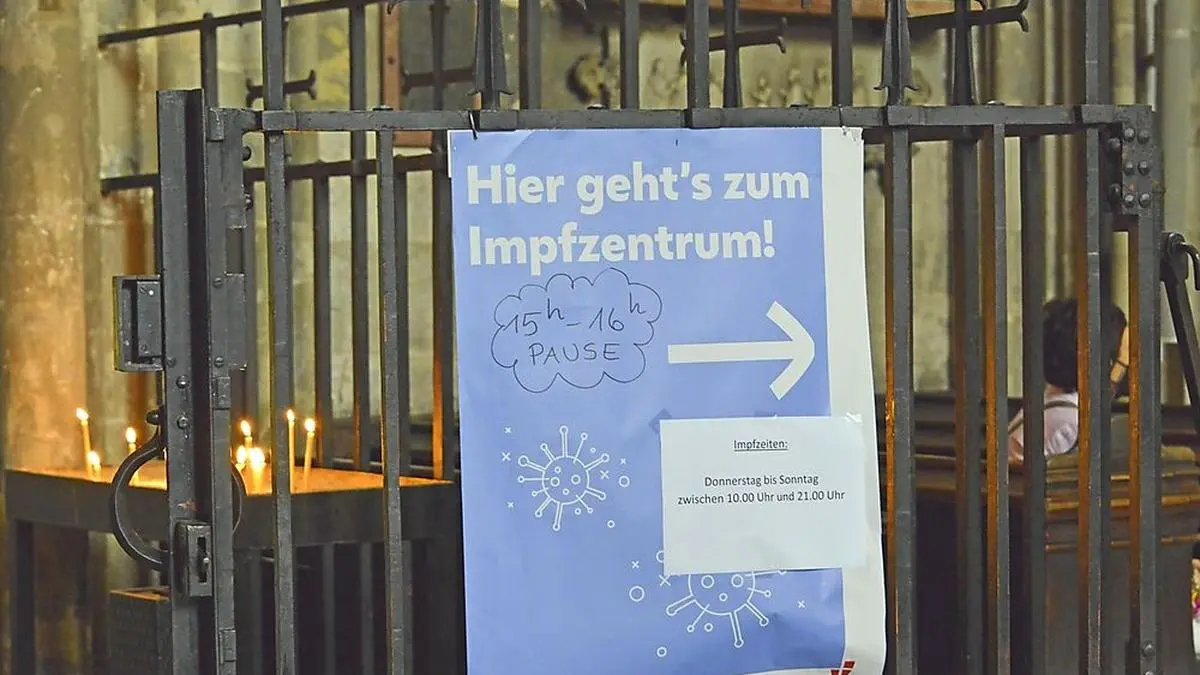 Hier geht's zum
Impfzentrum!
15h - 16h
PAUSE
Impfzeiten:
Donnerstag bis Sonntag
zwischen 10.00 Uhr und 21.00 Uhr